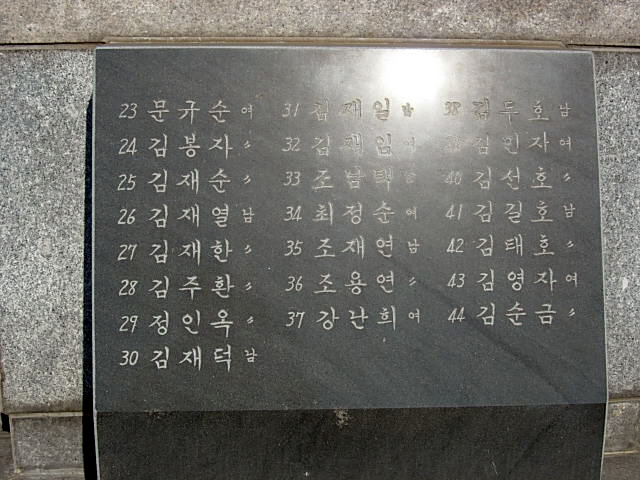 23 문규순 여
24 김봉자 〃
25 김재순 〃
26 김재열 남
27 김재한 〃
28 김주환 〃
29 정인옥 〃
30 김재덕 남
31 김재일 남
32 김재임 여
33 조남택 남
34 최정순 여
35 조재연 남
36 조용연 〃
37 강난희 여
38 김두호 남
39 김민자 여
40 김선호 〃
41 김길호 남
42 김태호 〃
43 김영자 여
44 김순금 〃